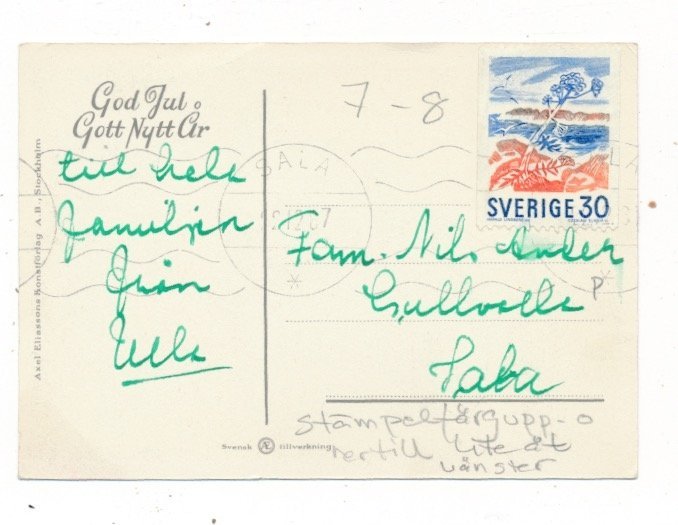 God Jul o
Gott Nytt År
till hela
familjen
från
Ulla
Axel Eliassons Konstförlag A.B., Stockholm
7-8
SALA
67
*
SVERIGE 30
Fam. Nils Ander
Sala
P
stämpelfärg upp-o
nertill lite åt
vänster
Svensk Æ tillverkning